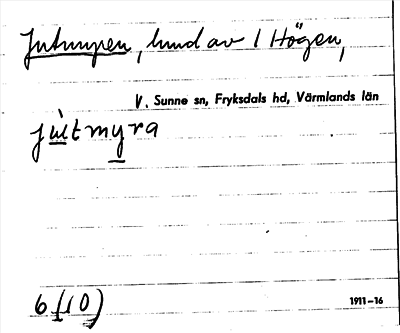 Jutmyren, lund av 1 Högen,
V. Sunne sn, Fryksdals hd, Värmlands län
6 (10)
1911-16